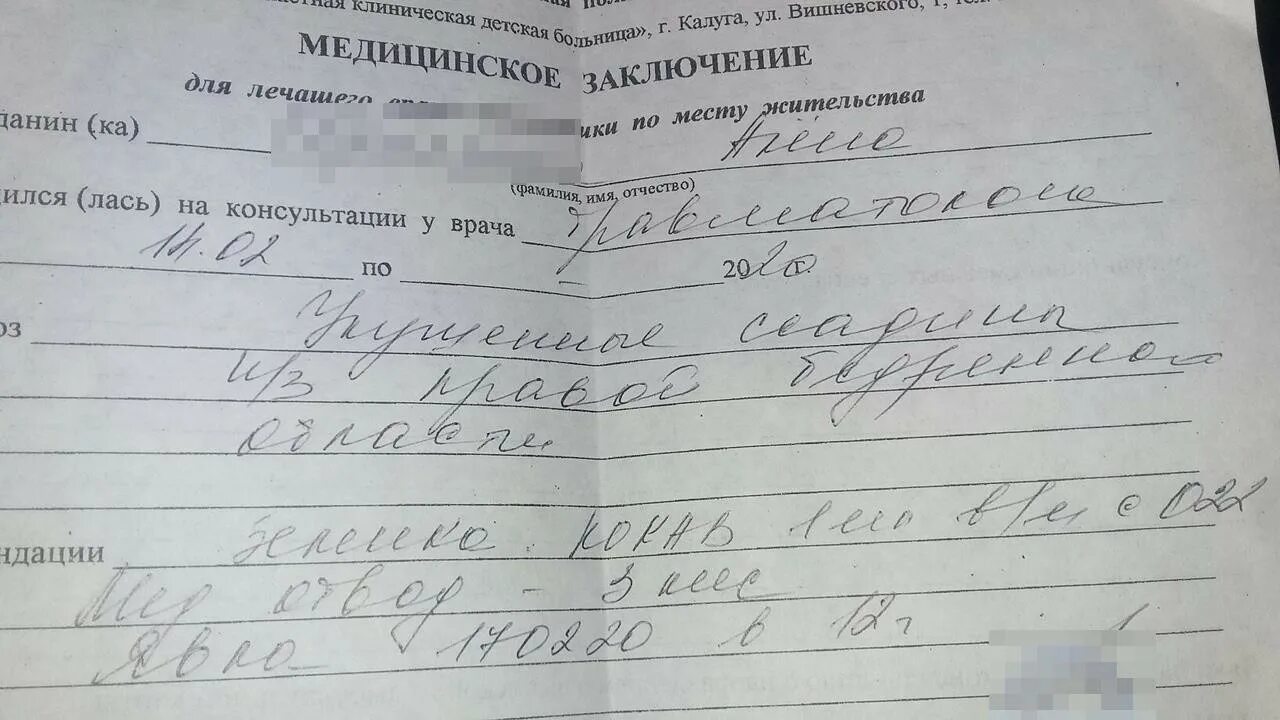 клиническая детская больница», г. Калуга, ул. Вишневского, 1, тел.
МЕДИЦИНСКОЕ ЗАКЛЮЧЕНИЕ
для лечащего ики по месту жительства
данин (ка) Алёна
(фамилия, имя, отчество)
ился (лась) на консультации у врача Травматолога
14.02 по – 2020 г.
оз Укушенные ссадины
н/з правой бедренной
области
ндации Зеленка. КОКАВ 1 мл в/м с 022
Мед отвод - 3 мес
Явка 170220 в 12 г